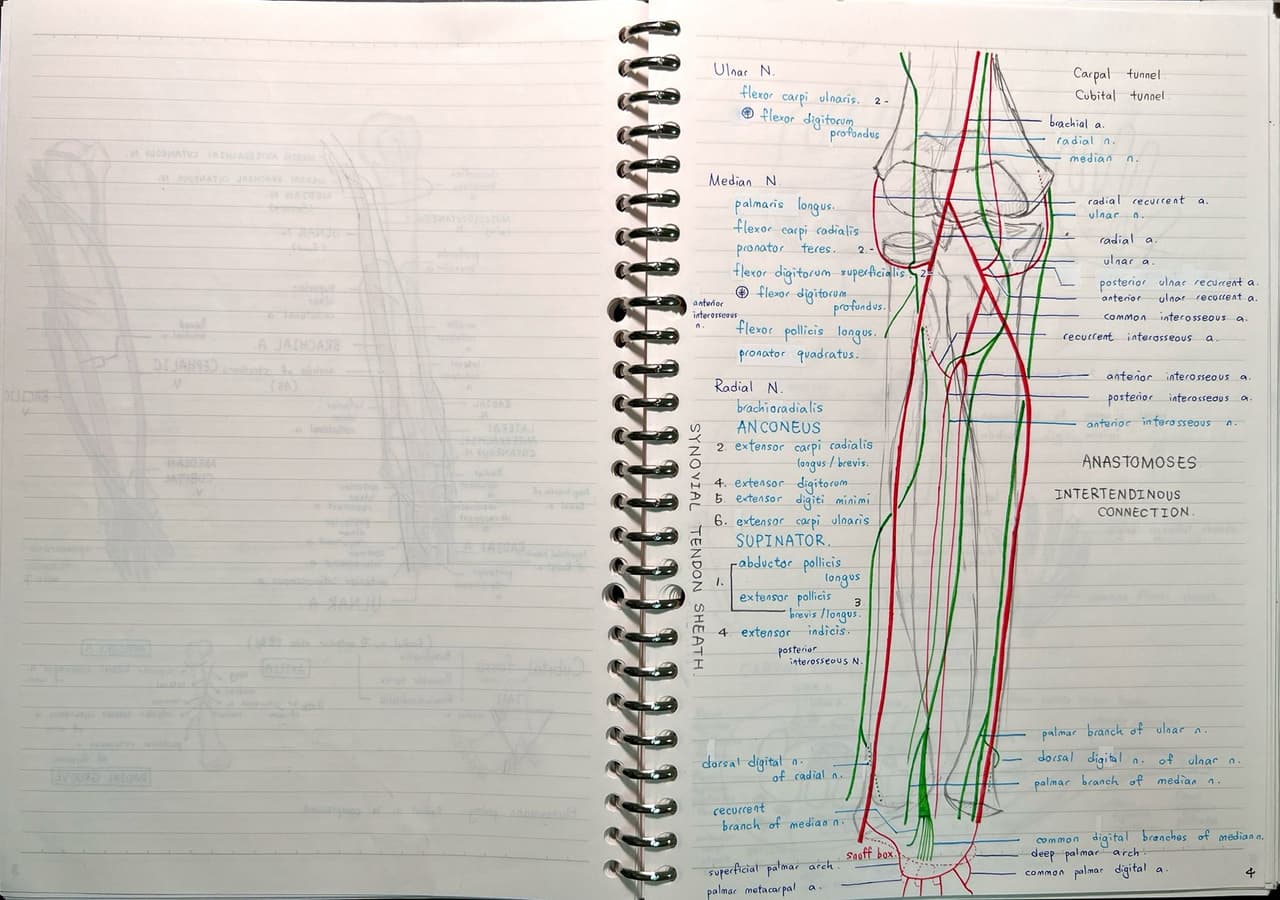 Ulnar N.
flexor carpi ulnaris. 2-
⊕ flexor digitorum
profundus
Median N.
palmaris longus.
flexor carpi radialis
pronator teres. 2-
flexor digitorum superficialis. 2-
⊕ flexor digitorum
profundus.
anterior
interosseous
n.
flexor pollicis longus.
pronator quadratus.
Radial N.
brachioradialis
ANCONEUS
2. extensor carpi radialis
longus / brevis.
4. extensor digitorum
5. extensor digiti minimi
6. extensor carpi ulnaris
SUPINATOR.
1. abductor pollicis
longus
extensor pollicis 3
brevis / longus.
4 extensor indicis.
posterior
interosseous N.
SYNOVIAL TENDON SHEATH.
dorsal digital n.
of radial n.
recurrent
branch of median n.
snuff box.
superficial palmar arch.
palmar metacarpal a.
Carpal tunnel
Cubital tunnel
brachial a.
radial n.
median n.
radial recurrent a.
ulnar n.
radial a.
ulnar a.
posterior ulnar recurrent a.
anterior ulnar recurrent a.
common interosseous a.
recurrent interosseous a.
anterior interosseous a.
posterior interosseous a.
anterior interosseous n.
ANASTOMOSES
INTERTENDINOUS
CONNECTION.
palmar branch of ulnar n.
dorsal digital n. of ulnar n.
palmar branch of median n.
common digital branches of median n.
deep palmar arch
common palmar digital a.
4